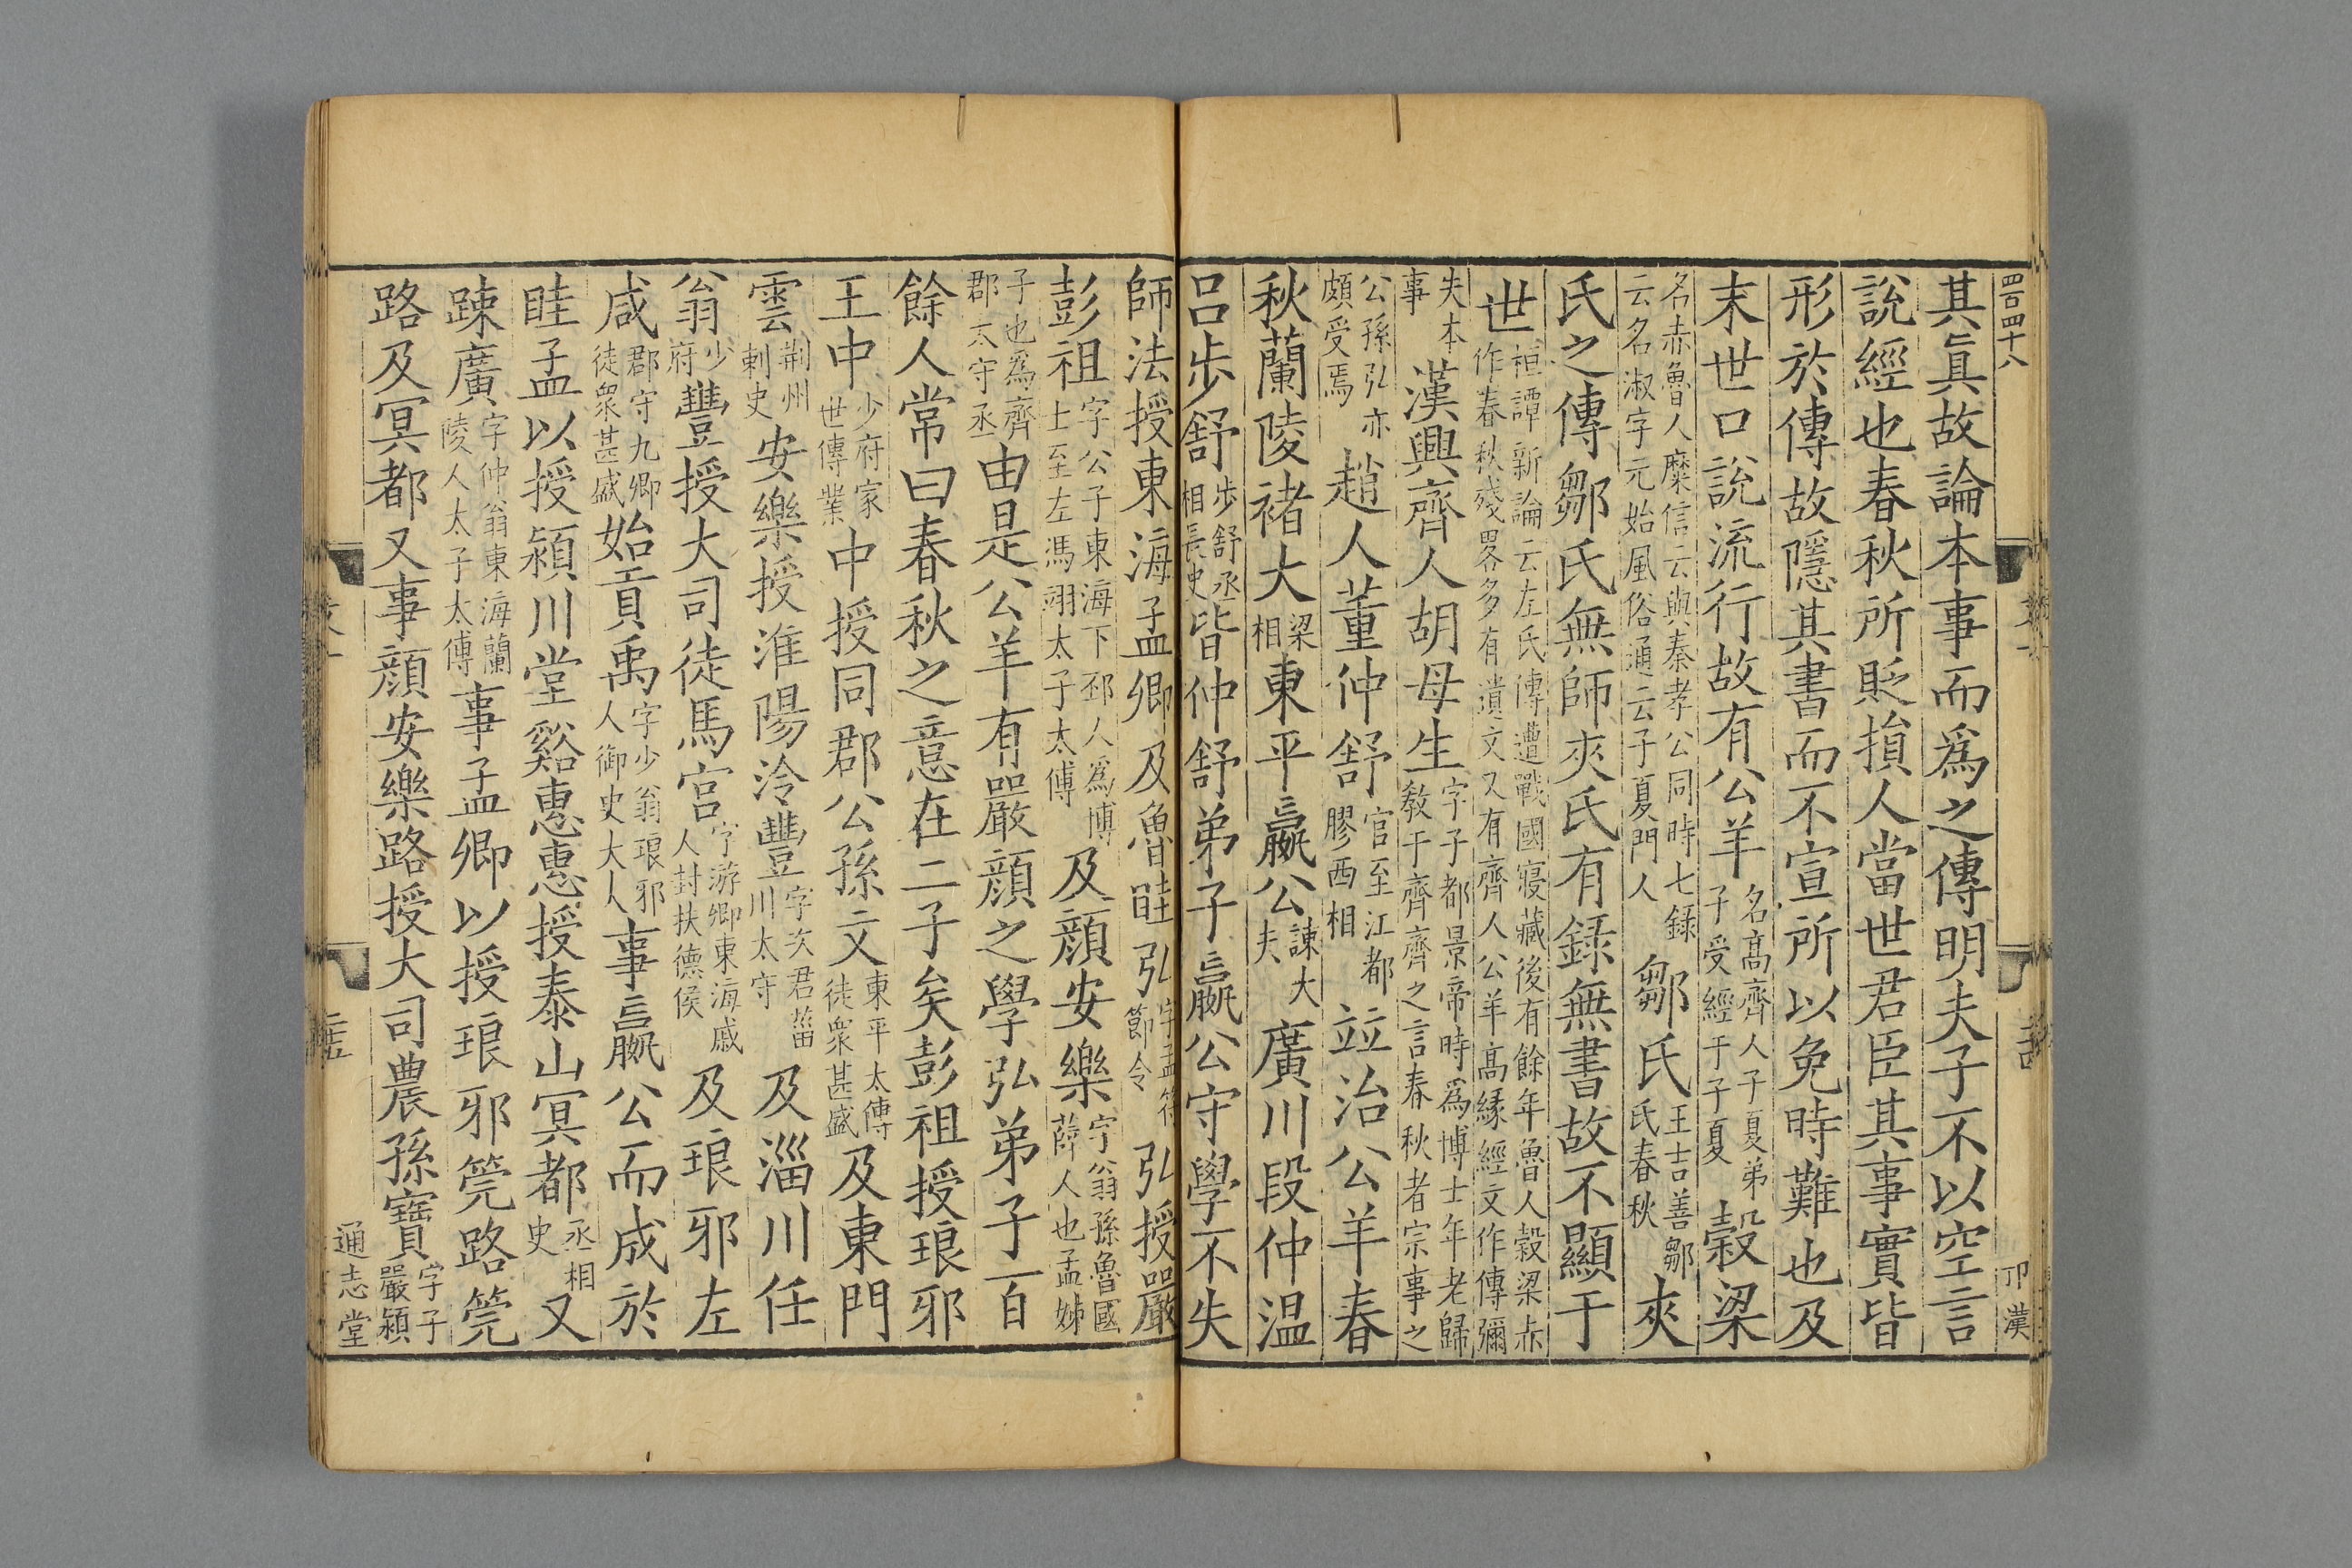 四百四十八
卭漢
其真故論本事而爲之傳明夫子不以空言
說經也春秋所貶損人當世君臣其事實皆
形於傳故隱其書而不宣所以免時難也及
末世口說流行故有公羊名髙齊人子夏弟子受經于子夏穀梁
名赤魯人糜信云與秦孝公同時七録云名淑字元始風俗通云子夏門人鄒氏王吉善鄒氏春秋夾
氏之傳鄒氏無師夾氏有録無書故不顯于
世桓譚新論云左氏傳遭戰國寑藏後有餘年魯人穀梁赤作春秋殘畧多有遺文又有齊人公羊髙緣經文作傳彌
失本事漢興齊人胡母生字子都景帝時爲博士年老歸敎于齊齊之言春秋者宗事之
公孫弘亦頗受焉趙人董仲舒官至江都膠西相竝治公羊春
秋蘭陵禇大梁相東平嬴公諫大夫廣川段仲温
吕步舒步舒丞相長史皆仲舒弟子嬴公守學不失
師法授東海孟卿及魯眭弘字孟符節令弘授嚴
彭祖字公子東海下邳人爲博士至左馮翊太子太傅及顔安樂字翁孫魯國薛人也孟姊
子也爲齊郡太守丞由是公羊有嚴顔之學弘弟子百
餘人常曰春秋之意在二子矣彭祖授琅邪
王中少府家世傳業中授同郡公孫文東平太傅徒衆甚盛及東門
雲荆州刺史安樂授淮陽泠豐字次君菑川太守及淄川任
翁少府豐授大司徒馬宫字游卿東海戚人封扶德侯及琅邪左
咸郡守九卿徒衆甚盛始貢禹字少翁琅邪人御史大人事嬴公而成於
眭孟以授潁川堂谿惠惠授泰山冥都丞相史又
踈廣字仲翁東海蘭陵人太子太傅事孟卿以授琅邪筦路筦
路及冥都又事顔安樂路授大司農孫寶字子嚴潁
通志堂